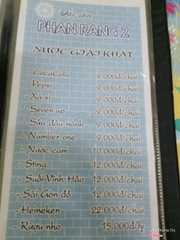 PHAN RANG 2
NƯỚC GIẢI KHÁT
- CocaCola 9.000đ/chai
- Pepsi 9.000đ/chai
- Xá xị 9.000đ/chai
- Seven up 9.000đ/chai
- Sữa đậu nành 9.000đ/chai
- Number one 9.000đ/chai
- Nước cam 10.000đ/chai
- Sting 12.000đ/chai
- Suối Vĩnh Hảo 12.000đ/chai
- Sài Gòn đỏ 12.000đ/chai
- Heineken 22.000đ/chai
- Rượu nho 15.000đ/ly